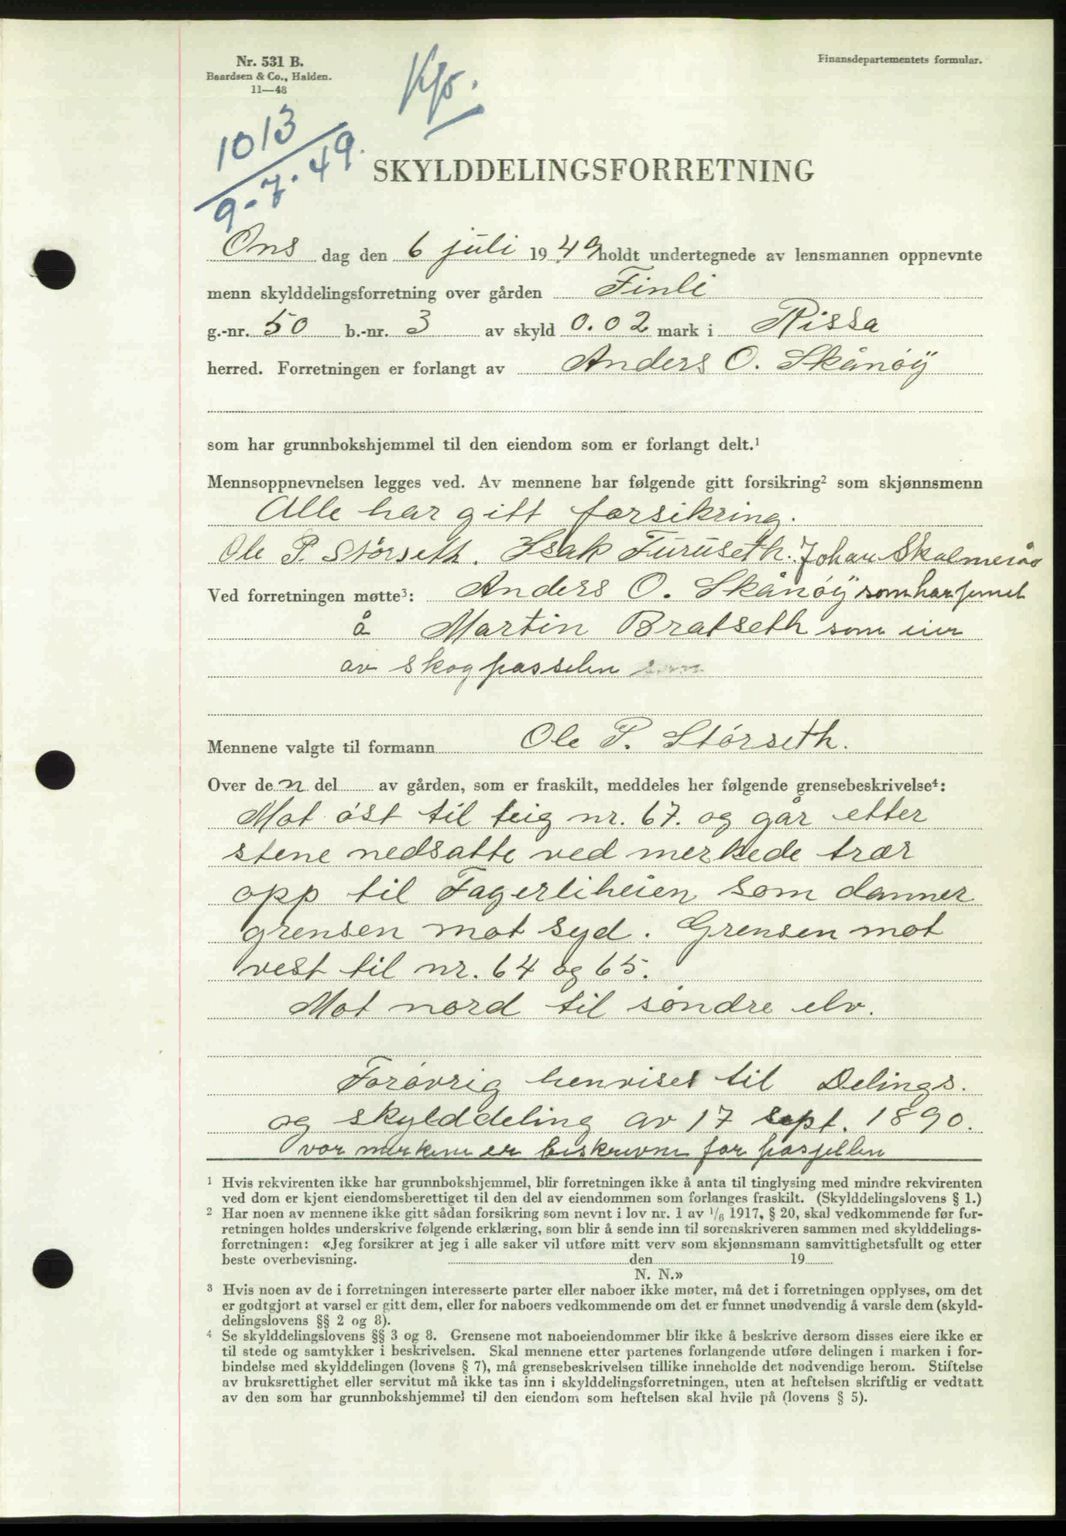 Nr. 531 B.
Baardsen & Co., Halden.
11—48
Finansdepartementets formular.
Kfr.
1013
9-7-49.
SKYLDDELINGSFORRETNING
Ons dag den 6 juli 1949 holdt undertegnede av lensmannen oppnevnte
menn skylddelingsforretning over gården Finli
g.-nr. 50 b.-nr. 3 av skyld 0.02 mark i Rissa
herred. Forretningen er forlangt av Anders O. Skånøy
som har grunnbokshjemmel til den eiendom som er forlangt delt.¹
Mennsoppnevnelsen legges ved. Av mennene har følgende gitt forsikring² som skjønnsmenn
Alle har gitt forsikring.
Ole P. Størseth. Isak Furuseth. Johan
Ved forretningen møtte³: Anders O. Skånøy som har
å Martin Bratseth som eier
av skogpasselen
Mennene valgte til formann Ole P. Størseth.
Over den del av gården, som er fraskilt, meddeles her følgende grensebeskrivelse⁴:
Mot øst til teig nr. 67. og går etter
stene nedsatte ved merkede trær
opp til Fagerliheien som danner
grensen mot syd. Grensen mot
vest til nr. 64 og 65.
Mot nord til søndre elv.
Forøvrig henvises til Delings-
og skylddeling av 17 sept. 1890.
vor merkene er beskrevne for
¹ Hvis rekvirenten ikke har grunnbokshjemmel, blir forretningen ikke å anta til tinglysing med mindre rekvirenten
ved dom er kjent eiendomsberettiget til den del av eiendommen som forlanges fraskilt. (Skylddelingslovens § 1.)
² Har noen av mennene ikke gitt sådan forsikring som nevnt i lov nr. 1 av ¹/₆ 1917, § 20, skal vedkommende før for-
retningen holdes underskrive følgende erklæring, som blir å sende inn til sorenskriveren sammen med skylddelings-
forretningen: «Jeg forsikrer at jeg i alle saker vil utføre mitt verv som skjønnsmann samvittighetsfullt og etter
beste overbevisning. den 19
N. N.»
³ Hvis noen av de i forretningen interesserte parter eller naboer ikke møter, må det i forretningen opplyses, om det
er godtgjort at varsel er gitt dem, eller for naboers vedkommende om det er funnet unødvendig å varsle dem (skyld-
delingslovens §§ 2 og 8).
⁴ Se skylddelingslovens §§ 3 og 8. Grensene mot naboeiendommer blir ikke å beskrive dersom disses eiere ikke er
til stede og samtykker i beskrivelsen. Skal mennene etter partenes forlangende utføre delingen i marken i for-
bindelse med skylddelingen (lovens § 7), må grensebeskrivelsen tillike inneholde det nødvendige herom. Stiftelse
av bruksrettighet eller servitut må ikke tas inn i skylddelingsforretningen, uten at heftelsen skriftlig er vedtatt
av den som har grunnbokshjemmel til den eiendom som heftelsen skal hvile på (lovens § 5).